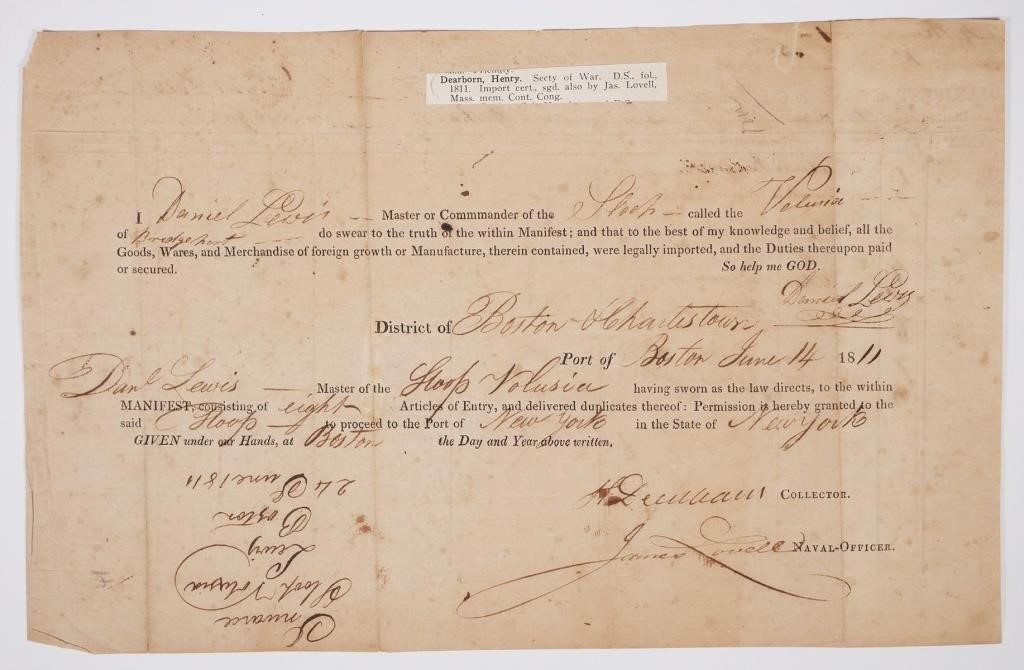 Dearborn, Henry. Secty of War. D.S., fol.,
1811. Import cert., sgd. also by Jas. Lovell,
Mass. mem. Cont. Cong.
I Daniel Lewis Master or Commmander of the Sloop called the Volusia
of Bridgeport do swear to the truth of the within Manifest; and that to the best of my knowledge and belief, all the
Goods, Wares, and Merchandise of foreign growth or Manufacture, therein contained, were legally imported, and the Duties thereupon paid
or secured. So help me GOD.
Daniel Lewis
District of Boston & Charlestown
Port of Boston June 14 1811
Danl Lewis Master of the Sloop Volusia having sworn as the law directs, to the within
MANIFEST, consisting of eight Articles of Entry, and delivered duplicates thereof: Permission is hereby granted to the
said Sloop to proceed to the Port of New York in the State of New York
GIVEN under our Hands, at Boston the Day and Year above written.
H Dearborn COLLECTOR.
James Lovell NAVAL-OFFICER.
Sloop Volusia
Lewis
Boston
24 June 1811